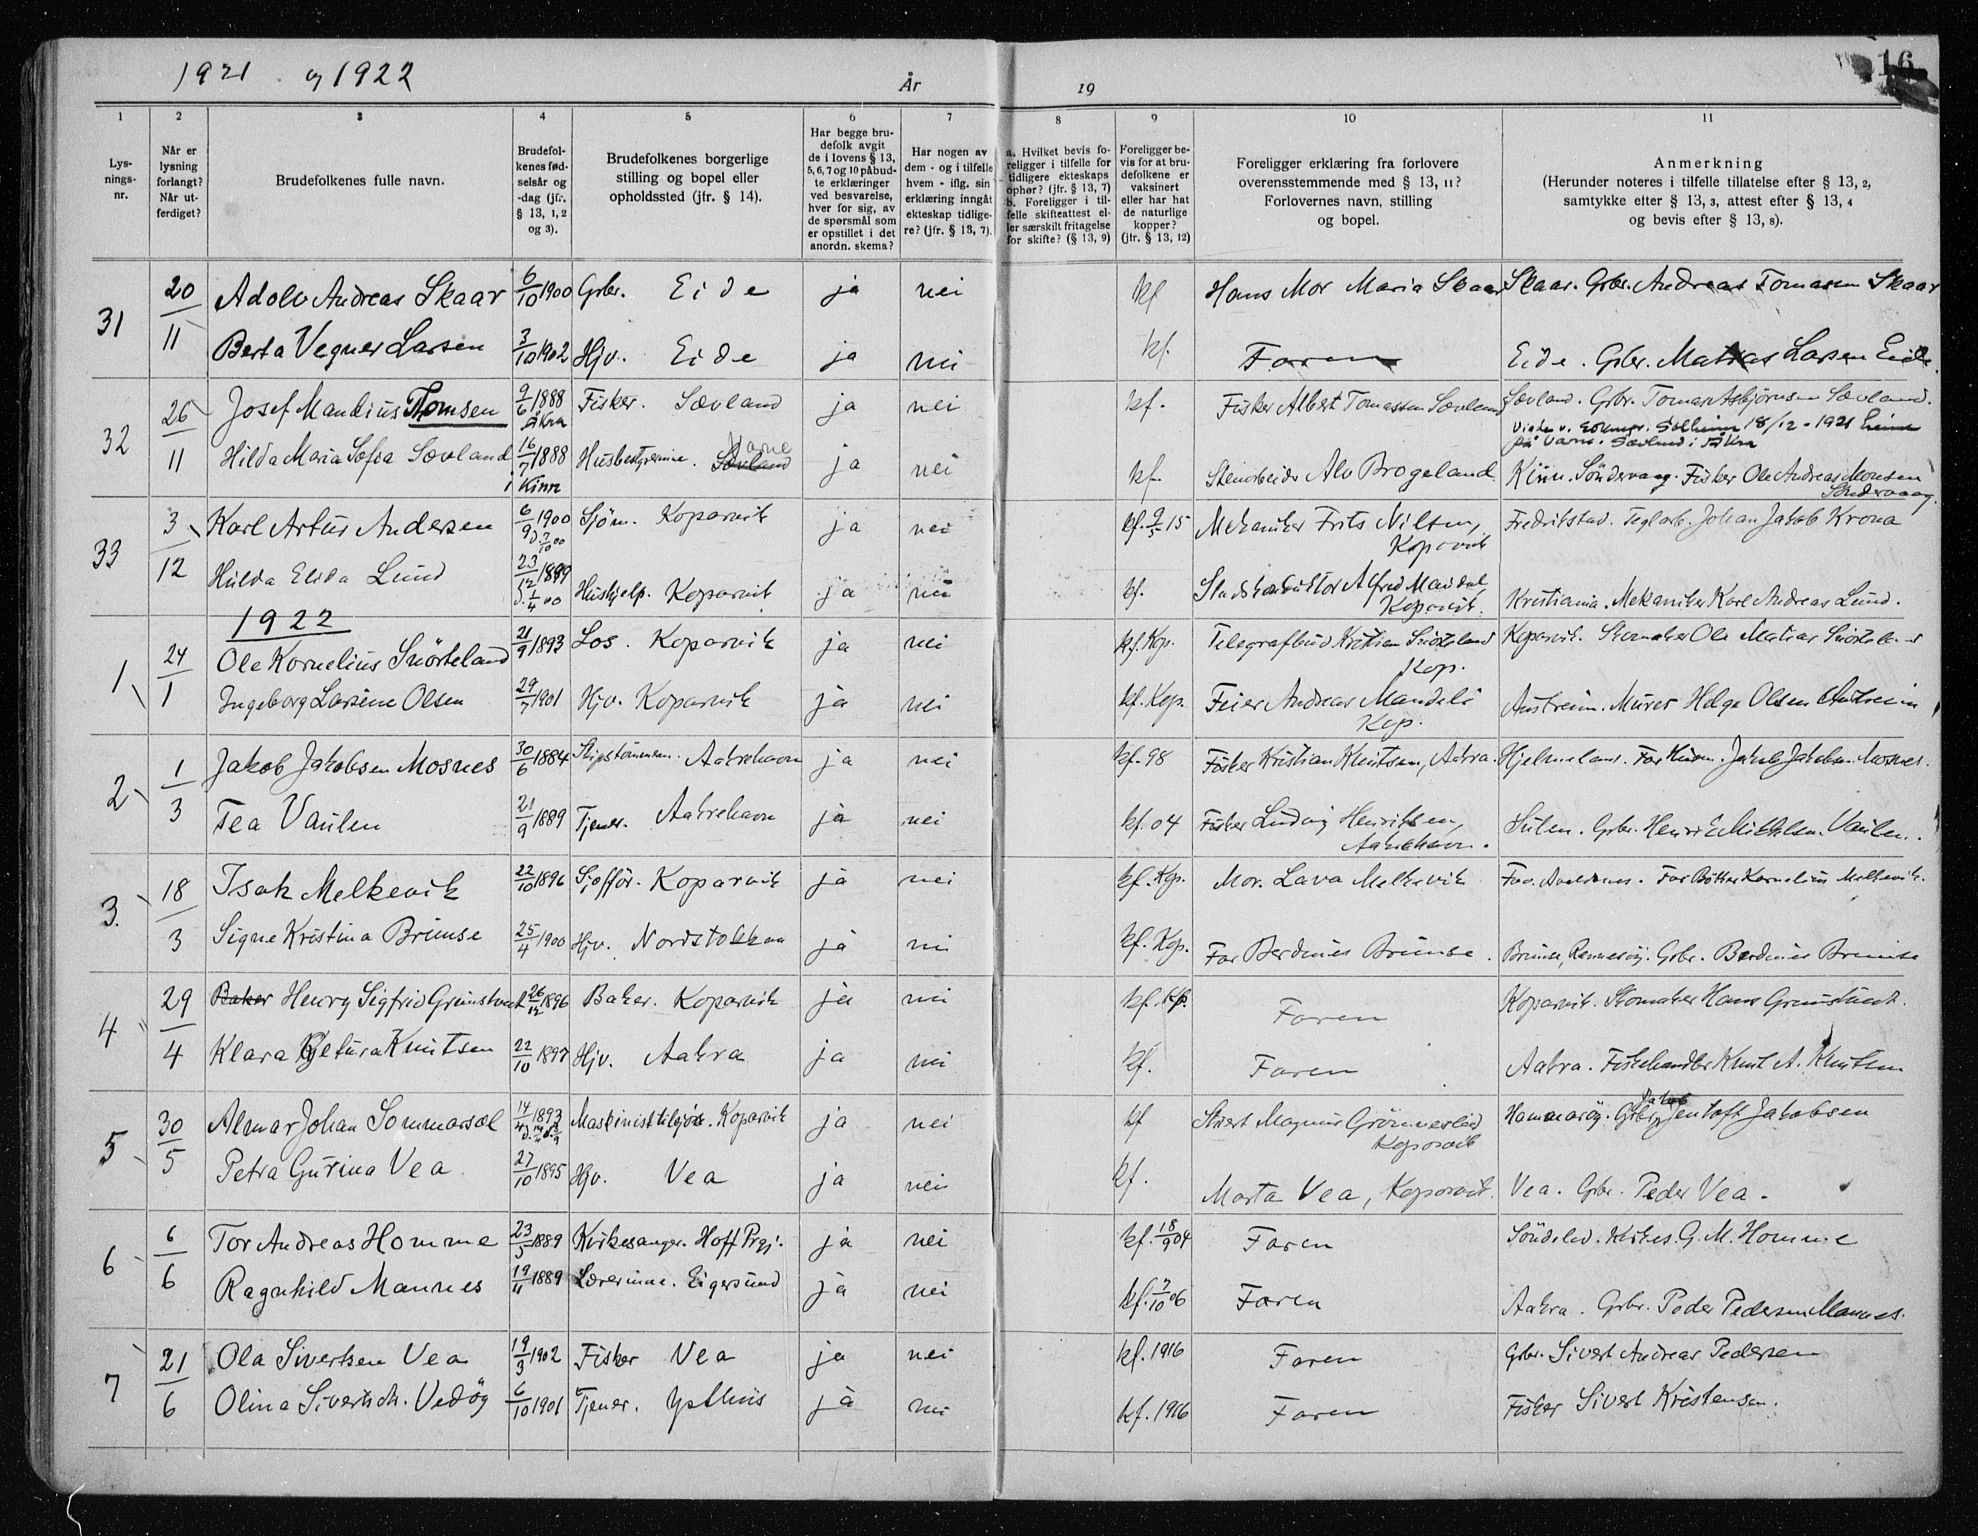 1921 og 1922
År
19
16
1
2
3
4
5
6
7
8
9
10
11
Lys-
nings-
nr.
Når er
lysning
forlangt?
Når ut-
ferdiget?
Brudefolkenes fulle navn.
Brudefol-
kenes fød-
selsår og
-dag (jfr.
§ 13, 1, 2
og 3).
Brudefolkenes borgerlige
stilling og bopel eller
opholdssted (jfr. § 14).
Har begge bru-
defolk avgit
de i lovens § 13,
5, 6, 7 og 10 påbud-
te erklæringer
ved besvarelse,
hver for sig, av
de spørsmål som
er opstillet i det
anordn. skema?
Har nogen av
dem - og i tilfelle
hvem - iflg. sin
erklæring inngåt
ekteskap tidlige-
re? (jfr. § 13, 7).
a. Hvilket bevis fo-
religger i tilfelle for
tidligere ekteskaps
ophør? (jfr. § 13, 7)
b. Foreligger i til-
felle skifteattest el-
ler særskilt fritagelse
for skifte? (§ 13, 9)
Foreligger be-
vis for at bru-
defolkene er
vaksinert
eller har hat
de naturlige
kopper?
(jfr. § 13, 12)
Foreligger erklæring fra forlovere
overensstemmende med § 13, 11?
Forlovernes navn, stilling
og bopel.
Anmerkning
(Herunder noteres i tilfelle tillatelse efter § 13, 2,
samtykke efter § 13, 3, attest efter § 13, 4
og bevis efter § 13, 8).
31 20/11 Adolv Andreas Skaar 6/10 1900 Grbr. Eide ja nei kf Hans Mor Maria Skaar Skaar. Grbr. Andreas Tomassen Skaar
Berta Vegner Larsen 3/10 1902 Hjv. Eide ja nei kf. Faren Eide. Grbr. Matias Larsen Eide.
32 26/11 Josef Mandius Tomsen 9/6 1888 Åkra Fisker. Sævland ja nei kf. Fisker Albert Tomassen Sævland Sævland. Grbr. Tomas Asbjørnsen Sævland.
Viede v. Sokner. Solheim 18/12 - 1921
Varne. Sævland i Åkra
Hilda Maria Sofia Sævland 16/7 1888 i Kinn Husbestyrerinne. Sævland Varne ja nei kf. Stenarbeider Alv Brogeland Kinn. Söndervaag. Fisker Ole Andreas Monsen
Söndervaag.
33 3/12 Karl Artur Andersen 6/9 1900 d. 7/10 00 Sjøm. Koparvik ja nei kf. 9/5 15 Mekaniker Frits Nilsen, Fredrikstad. Teglarb. Johan Jakob Krona
Koparvik
Hilda Elida Lund 23/12 1899 d. 1/4 00 Hushjelp. Koparvik ja nei kf. Alfred Mandal, Kristiania. Mekaniker Karl Andreas Lund.
Koparvik.
1922
1 24/1 Ole Kornelius Snörteland 21/9 1893 Los. Koparvik ja nei kf. Kop. Telegrafbud Kristian Snörteland Koparvik. Skomaker Ole Matias
Kop.
Ingeborg Larsine Olsen 29/7 1901 Hjv. Koparvik ja nei kf. Kop. Feier Andreas Mandeli Austreim. Murer Helge Olsen Austreim
Kop.
2 1/3 Jakob Jakobsen Mosnes 30/6 1884 Skipstömmerm. Aakrehavn ja nei kf. 98 Fisker Kristian Knutsen, Aakra. Hjelmeland. Jakob Jakobsen Mosnes.
Tea Vaulen 21/9 1889 Tjener. Aakrehavn ja nei kf. 04 Fisker Ludvig Henriksen, Sulen. Grbr. Henrik Mikkelsen Vaulen.
Aakrehavn.
3. 18/3 Isak Melkevik 22/10 1896 Sjofför. Koparvik ja nei kf. Kop. Mor. Lava Melkevik Avaldsnes. Far Bøkker Kornelius Melkevik.
Signe Kristina Brimse 25/4 1900 Hjv. Nordstokkaa ja nei kf. Kop. Far Berdines Brimse. Brimse, Rennesøy. Grbr. Berdines Brimse
4 29/4 Baker Henry Sigfrid Grimstvedt 26/12 1896 Baker. Koparvik ja nei kf. Kop. Faren Koparvik. Skomaker Hans
Klara Kjetura Knutsen 22/10 1897 Hjv. Aakra ja nei kf. Faren Aakra. Fiskehandler Knut A. Knutsen
5 30/5 Almar Johan Sommarsæl 14/4 1893 Maskinist tilsjøs. Koparvik ja nei kf Magnus Grönnerlid Hammaröy. Grbr. Jakob Jentoft Jakobsen
Koparvik
Petra Gurina Vea 27/10 1895 Hjv. Vea ja nei kf. Marta Vea, Koparvik. Vea. Grbr. Peder Vea.
6 6/6 Tor Andreas Homme 23/5 1889 Kirkesanger. Hoff Prgj. ja nei kf. 18/9 04 Faren Söndeled. Kirkes. G. M. Homme
Ragnhild Mannes 19/11 1889 Lærerinne. Eigersund ja nei kf. 7/10 06 Faren Aakra. Grbr. Peder Pedersen Mannes.
7 21/6 Ola Sivertsen Vea 19/3 1902 Fisker Vea ja nei kf. 1916 Faren Grbr. Sivert Andreas Pedersen
Olina Sivertsdtr. Vedöy 6/10 1901 Tjener. ja nei kf. 1916 Faren Fisker Sivert Kristensen.